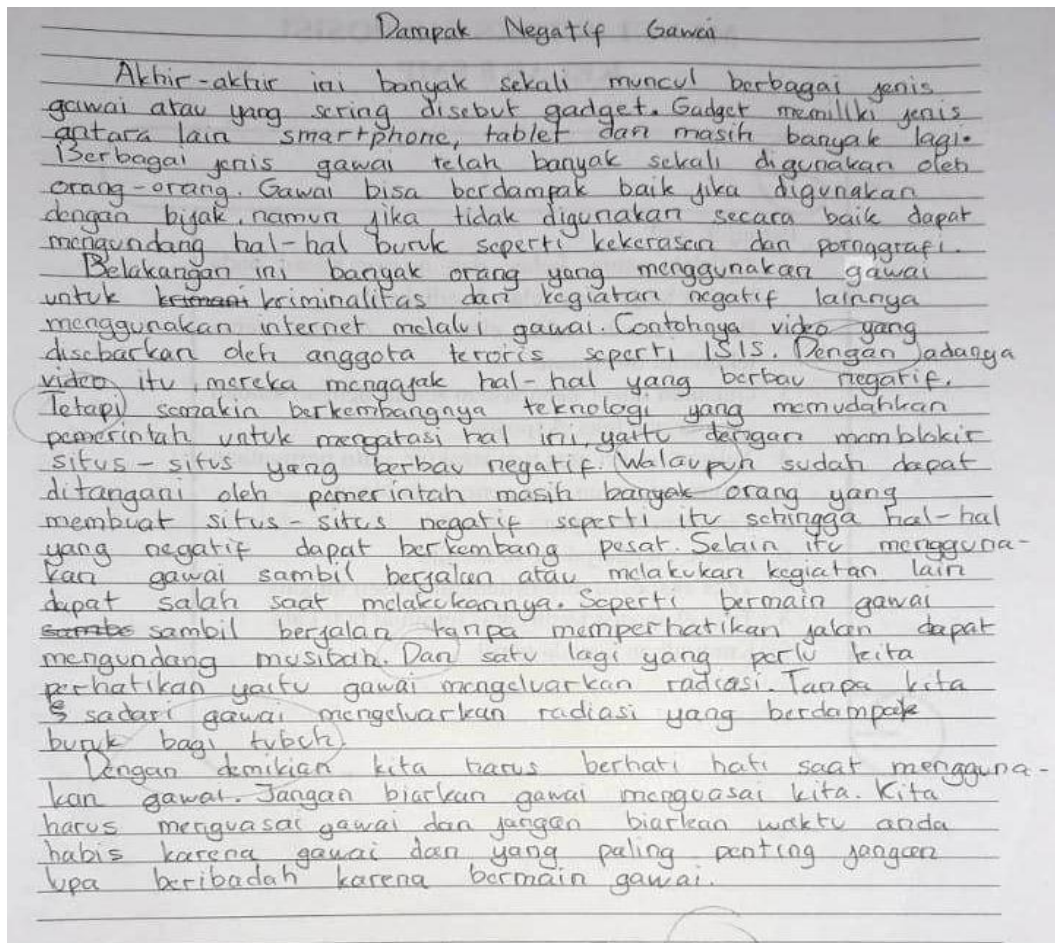 Dampak Negatif Gawai
Akhir-akhir ini banyak sekali muncul berbagai jenis
gawai atau yang sering disebut gadget. Gadget memiliki jenis
antara lain smartphone, tablet dan masih banyak lagi.
Berbagai jenis gawai telah banyak sekali digunakan oleh
orang-orang. Gawai bisa berdampak baik jika digunakan
dengan bijak, namun jika tidak digunakan secara baik dapat
mengundang hal-hal buruk seperti kekerasan dan pornggrafi.
Belakangan ini banyak orang yang menggunakan gawai
untuk kriminalitas dan kegiatan negatif lainnya
menggunakan internet melalui gawai. Contohnya video yang
disebarkan oleh anggota teroris seperti ISIS. Dengan adanya
video itu, mereka mengajak hal-hal yang berbau negatif.
Tetapi semakin berkembangnya teknologi yang memudahkan
pemerintah untuk mengatasi hal ini, yaitu dengan memblokir
situs-situs yang berbau negatif. Walaupun sudah dapat
ditangani oleh pemerintah masih banyak orang yang
membuat situs-situs negatif seperti itu sehingga hal-hal
yang negatif dapat berkembang pesat. Selain itu mengguna-
kan gawai sambil berjalan atau melakukan kegiatan lain
dapat salah saat melakukannya. Seperti bermain gawai
sambil berjalan tanpa memperhatikan jalan dapat
mengundang musibah. Dan satu lagi yang perlu kita
perhatikan yaitu gawai mengeluarkan radiasi. Tanpa kita
sadari gawai mengeluarkan radiasi yang berdampak
buruk bagi tubuh.
Dengan demikian kita harus berhati hati saat mengguna-
kan gawai. Jangan biarkan gawai menguasai kita. Kita
harus menguasai gawai dan jangan biarkan waktu anda
habis karena gawai dan yang paling penting jangan
lupa beribadah karena bermain gawai.